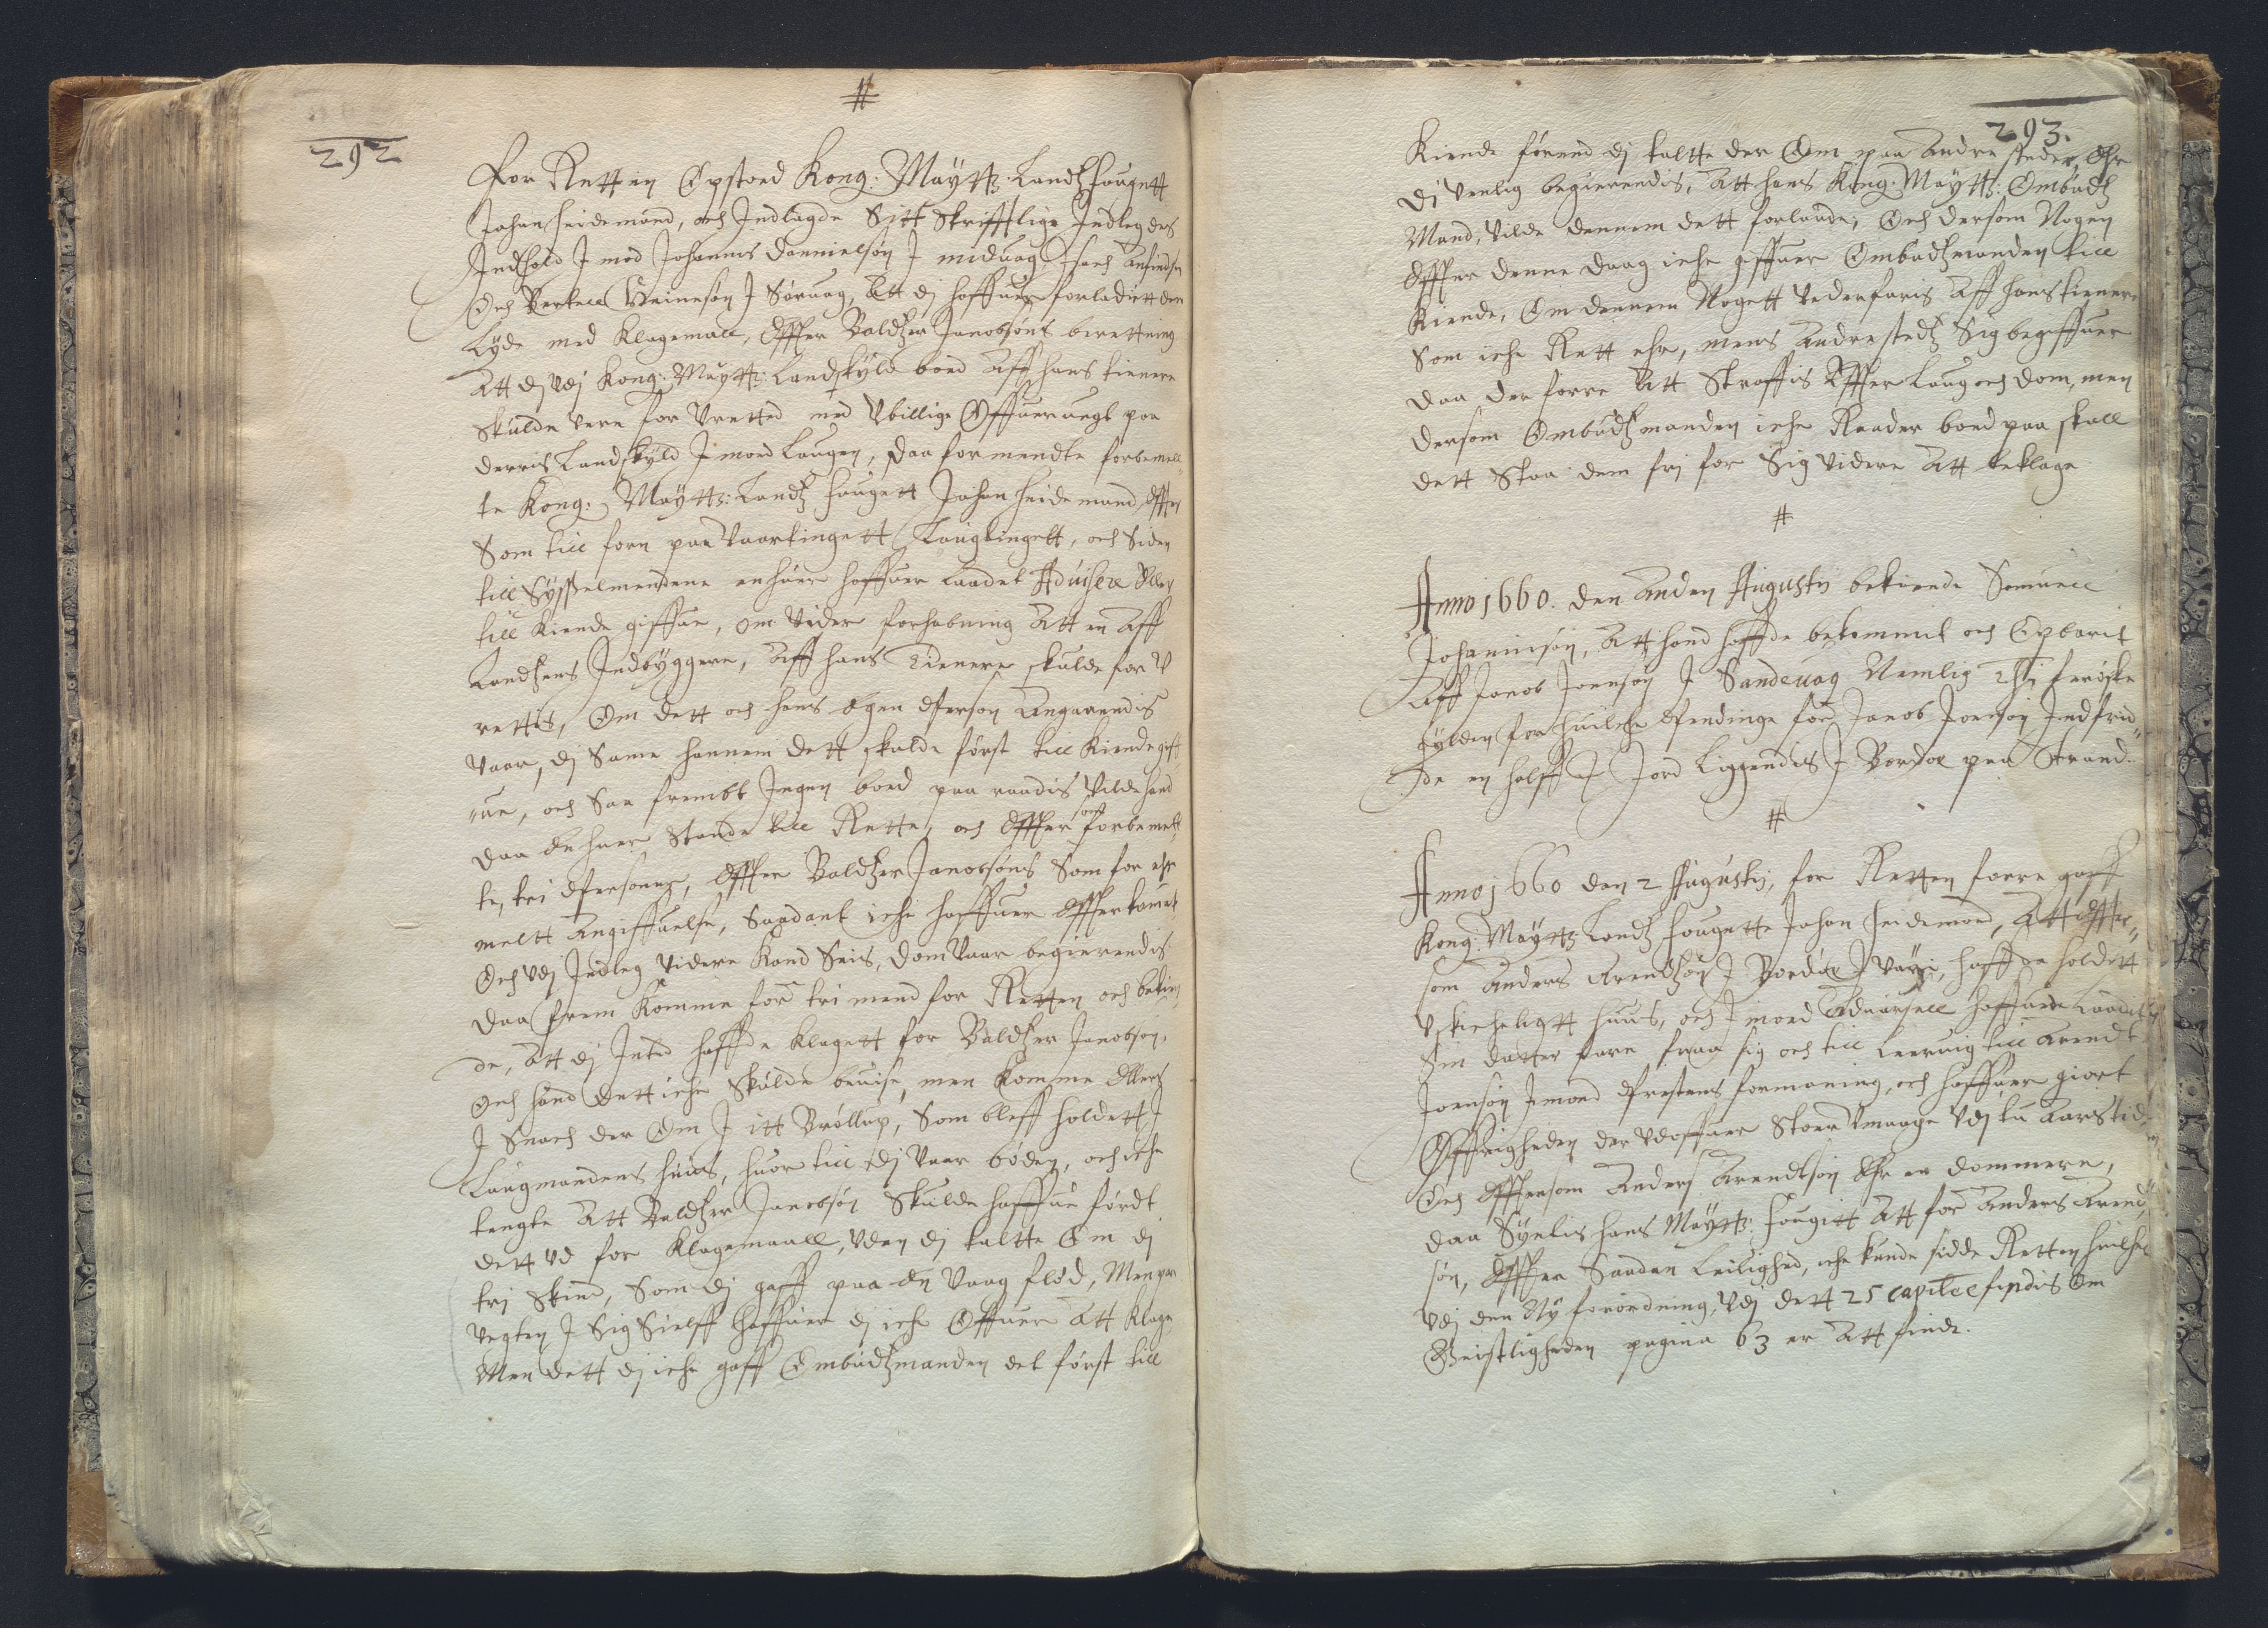 #
292
For Retten Opstoed Kong: Maÿtts: Landtz fougett
Johan Heidemand, och Indlagde Sitt Skrifftlige Indleg des
Indhold I mod Johannis Dannielsøn I miduag, Isach
Och Bertell Heinesøn I Søruag, Att dj haffuer forladitt den
Lÿde med Klagemall, Effter Baldtzer Jacobsøns berettning
Att dj Vdj Kong: Maÿtts: Landskÿld boed Aff hans tienere
Skulde vere for Vretted med Vbillige Offueruegt paa
derris Landskÿld I moed Laugen, Daa formendte forbemel-
te Kong: Maÿtts: Landtz fougett Johan Heidemand, Effter
Som till forn paa Vaartingett, Laugtingett, och Siden
till Sÿsselmendene enhuer haffuer Laadet Aduisere Eller
till Kiende giffue, om Vider forhabning Att en Aff
Landtzens Indbÿggere, Aff hans Tienere skulde for V
rettis, Om dett och hans Egen Person Angaaendis
Vaar, dj Same hannem dett skulde først till Kiende giff
ue, och Saa frembt Ingen boed paa raadis Vilde hand
Daa Enhuer Stande till Rette, och Effter som forbemelt
te, tri Personer, Effter Baldtzer Jacobsøns Som for ehr
meltt Angiffuelse, Saadant iche haffuer Effterkomet
Och Vdj Indleg Videre Kand Seis, Dom Vaar begierendis
Daa frem Komme for tri mend for Retten och bekien
de, Att dj Inted haffde Klagett for Baldtzer Jacobsøn,
Och hand dett iche Skulde beuise, men Komme Ellers
I Snach der Om I itt Brøllup, Som bleff holdett I
Laugmandens huus, huor till dj Vaar bøden, och iche
tengte Att Baldtzer Jacobsøn Skulde haffue førdt
dett Vd for Klagemaall, Vden dj taltte Om dj
tri Skind, Som dj gaff paa En Vaag flød, Men paa
Vegten I Sig Sielff haffuer dj iche Offuer Att Klage
Men dett dj iche gaff Ombudtzmanden det først till
293.
Kiende førend dj taltte der Om paa Andre steder, Ehr
Dj Venlig begierendis, Att hans Kong: Maÿtts: Ombudtz
Mand, Vilde dennem dett forlade, Och dersom Nogen
Effter denne Daag iche giffuer Ombudtzmanden till
Kiende, Om dennem Nogett Vederfaris Aff hans tienere
Som iche Rett ehr, mens Andrestedtz Sig begiffuer
Daa der forre Att Straffis Effter Laug och Dom, men
Dersom Ombudtzmanden iche Raader boed paa skall
dett Staa dem frj for Sig Videre Att beklage
#
Anno 1660. den Anden Augusti bekiende Samuell
Johannisøn, Att hand haffde bekommit och Opbaarit
Aff Jacob Joensøn I Sandeuag Nemlig færøske
gÿlden for huilche Pendinge for Jacob Joensøn Indfrid
de en halff Jord Liggendis I Bordoe paa Strand
#
Anno 1660 den 2 Augusti, for Retten forre gaff
Kong: Maÿtts: Landtz fougette Johan Heidemand, Att Effter
som Anders Arendtsøn I Bordøe I Vaÿi, haffde holdett
Vskicheligtt huus, och I moed Aduarsell haffuer Laadit
Sin datter fare fraa sig och till Leeruig till Arendt
Joensøn Imoed Prestens formaning, och haffuer giort
Øffrigheden der Vdoffuer Stoer Vmaage Vdj tu Aars tid
Och Effttersom Anders Arendtsøn Ehr en Dommere,
Daa Sÿntis hans Maÿtts: fougitt Att for Anders Arend
søn, Effter Saadan Leilighed, iche kunde sidde Retten huilchet
Vdj den Nÿ forordning, Vdj dett 25 capitel findis Om
Geistligheden pagina 63 er Att finde.